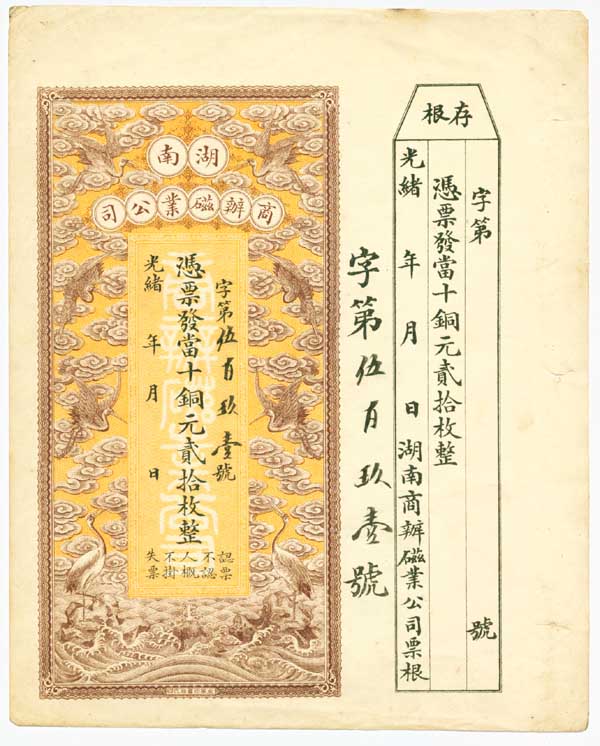 存根
字第 號
憑票發當十銅元貳拾枚整
光緒 年 月 日 湖南商辦磁業公司票根
字第伍百玖壹號
湖南
商辦磁業公司
字第伍百玖壹號
憑票發當十銅元貳拾枚整
光緒 年 月 日
認票不認人概不掛失票